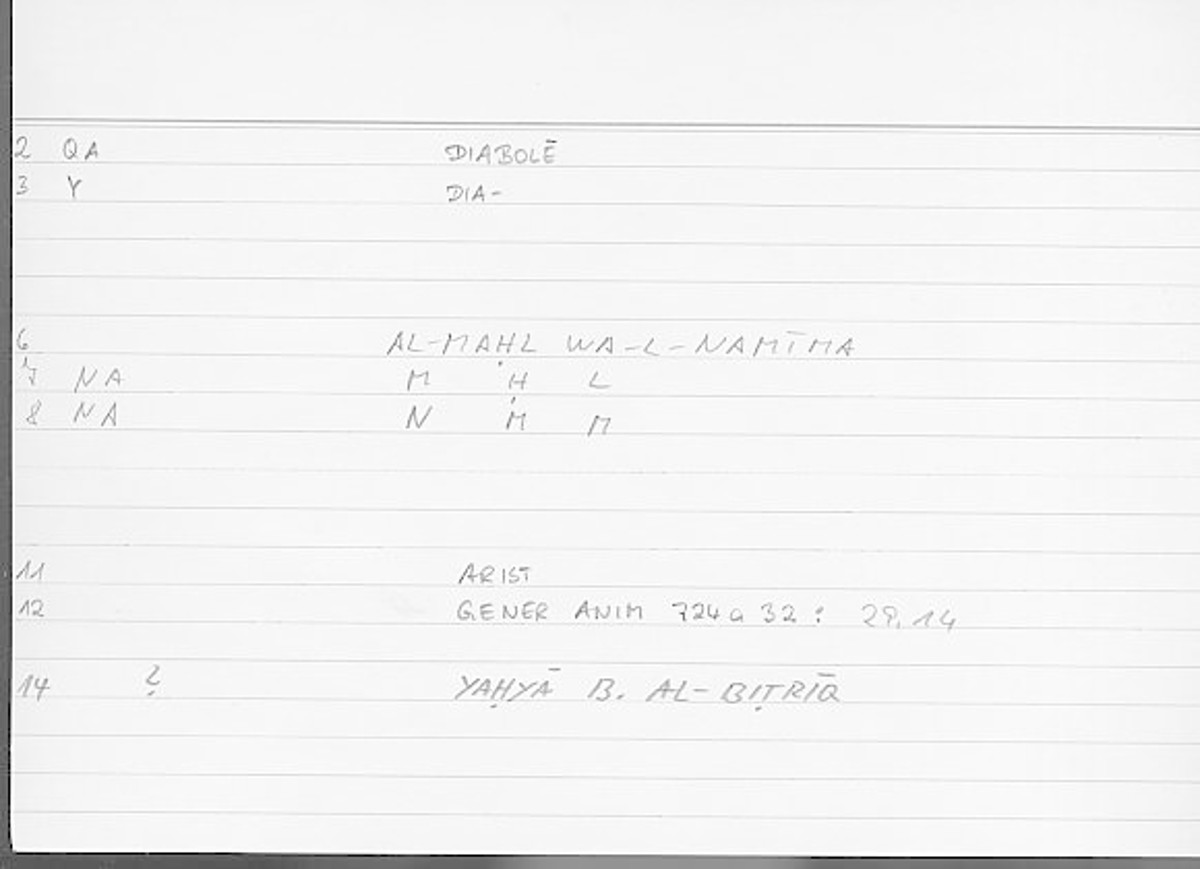 2 QA DIABOLĒ
3 Y DIA-
6 AL-MAḤL WA-L-NAMĪMA
7 NA M Ḥ L
8 NA N M M
11 ARIST
12 GENER ANIM 724a 32 : 29,14
14 ? YAḤYĀ B. AL-BIṬRĪQ